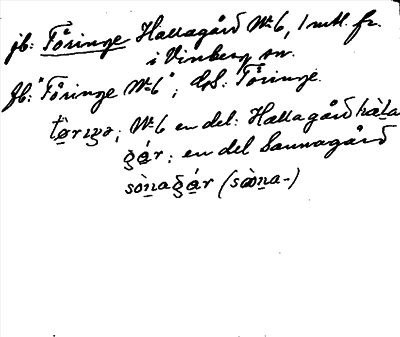 jb: Töringe Hallagård No 6, 1 mtl. fr.
i Vinberg sn.
Jb: "Töringe No 6"; GS: Töringe.
tø̀riŋə; No 6 en del: Hallagård hàla
gár; en del Sannagård
sònagár (sàna-)